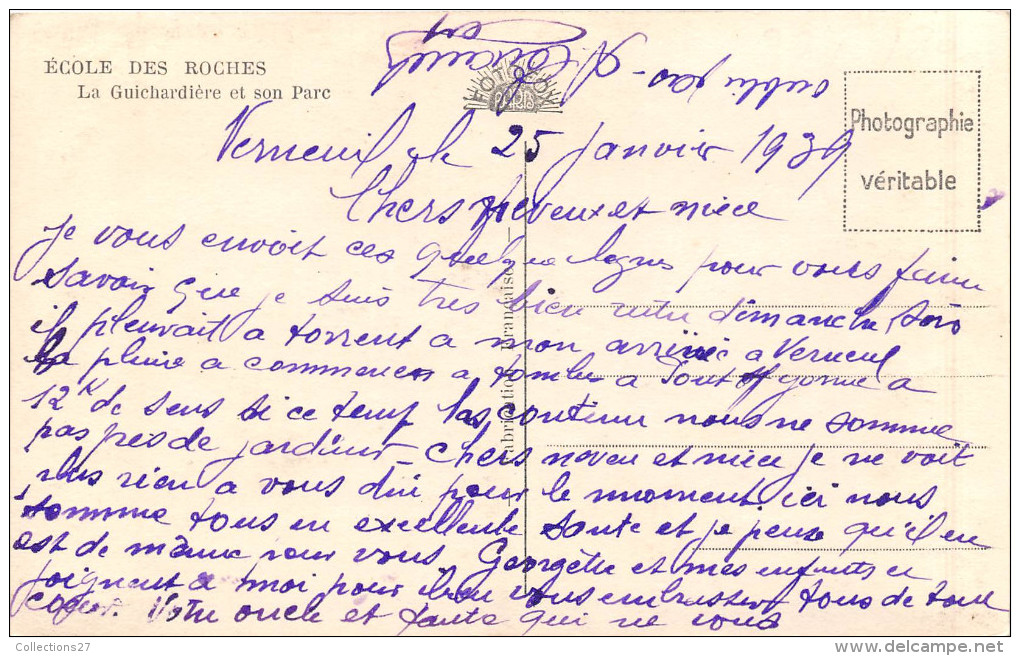 ÉCOLE DES ROCHES
La Guichardière et son Parc
FOTOFOX
PARIS
Photographie
véritable
Fabrication Française
Verneuil le 25 Janvier 1939
Chers neveux et niece
je vous envoit ces quelque lignes pour vous faire
savoir que je suis tres bien rentre dimanche soir
il pleuvait a torrent a mon arrivée a Verneuil
la pluie a commencer a tomber a Pont a
12 K de Sens si ce temp la continu nous ne somme
pas pres de jardiner - chers neveu et niece je ne voit
plus rien a vous dire pour le moment ici nous
somme tous en excellente santé et je pense qu'il en
est de meme pour vous. Georgette et mes enfants se
joignent a moi pour bien vous embrasser tous de tout
cœur. Votre oncle et tante qui ne vous
oublie pas -
Collections27
www.delcampe.net